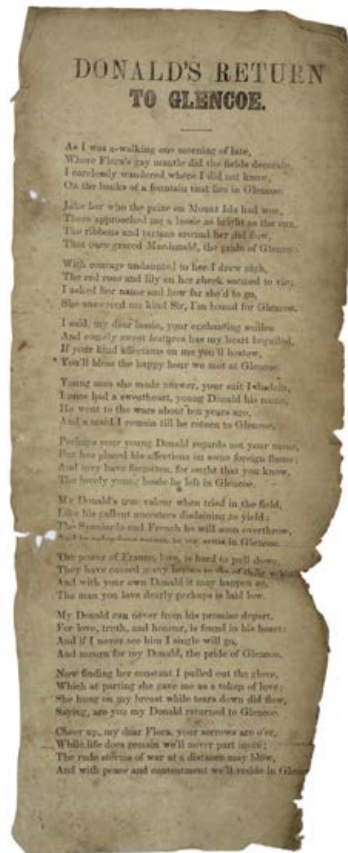 DONALD'S RETURN
TO GLENCOE.
As I was a-walking one morning of late,
Where Flora's gay mantle did the fields decorate,
I carelessly wandered where I did not know,
On the banks of a fountain that lies in Glencoe.
Like her who the prize on Mount Ida had won,
There approached me a lassie as bright as the sun,
The ribbons and tartans around her did flow,
That once graced Macdonald, the pride of Glencoe.
With courage undaunted to her I drew nigh,
The red rose and lily on her cheek seemed to vie;
I asked her name and how far she'd to go,
She answered me kind Sir, I'm bound for Glencoe.
I said, my dear lassie, your enchanting smiles
And comely sweet features has my heart beguiled,
If your kind affections on me you'll bestow,
You'll bless the happy hour we met at Glencoe.
Young man she made answer, your suit I disdain,
I once had a sweetheart, young Donald his name,
He went to the wars about ten years ago,
And a maid I remain till he return to Glencoe.
Perhaps your young Donald regards not your name,
But has placed his affections on some foreign flame;
And may have forgotten, for ought that you know,
The lovely young lassie he left in Glencoe.
My Donald's true valour when tried in the field,
Like his gallant ancestors disdaining to yield;
The Spaniards and French he will soon overthrow,
And in return to my arms in Glencoe.
The power of France, love, is hard to pull down,
They have caused many heroes to die of their
And with your own Donald it may happen so,
The man you love dearly perhaps is laid low.
My Donald can never from his promise depart,
For love, truth, and honour, is found in his heart;
And if I never see him I single will go,
And mourn for my Donald, the pride of Glencoe.
Now finding her constant I pulled out the glove,
Which at parting she gave me as a token of love;
She hung on my breast while tears down did flow,
Saying, are you my Donald returned to Glencoe.
Cheer up, my dear Flora, your sorrows are o'er,
While life does remain we'll never part more;
The rude storms of war at a distance may blow,
And with peace and contentment we'll reside in